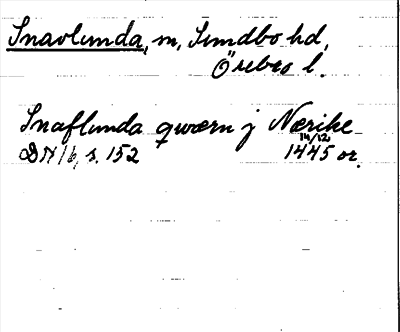 Snavlunda, m, Sundbo hd,
Örebro l.
Snaflunda qwærn j Nærike
14/12
DN 16, s. 152 1445 or.